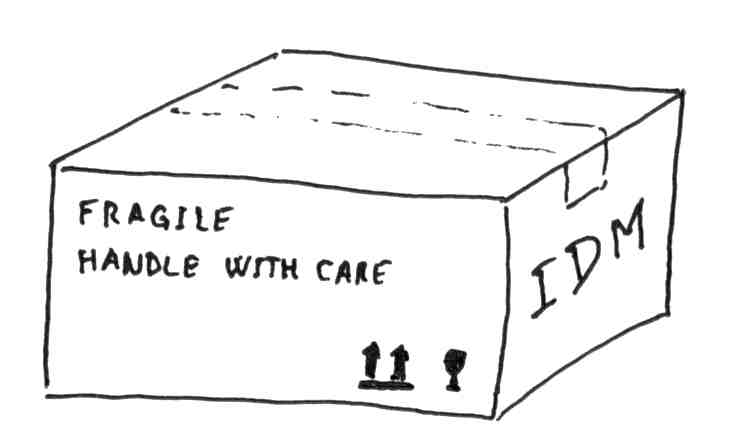 FRAGILE
HANDLE WITH CARE
IDM